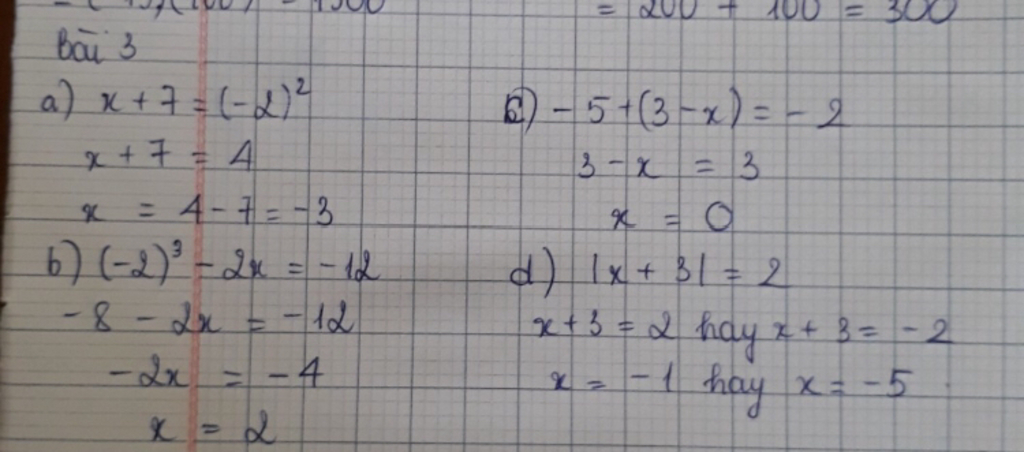 = 200 + 100 = 300
Bài 3
a) x + 7 = (-2)²
x + 7 = 4
x = 4 - 7 = -3
b) (-2)³ - 2x = -12
-8 - 2x = -12
-2x = -4
x = 2
c) -5 + (3 - x) = -2
3 - x = 3
x = 0
d) |x + 3| = 2
x + 3 = 2 hay x + 3 = -2
x = -1 hay x = -5